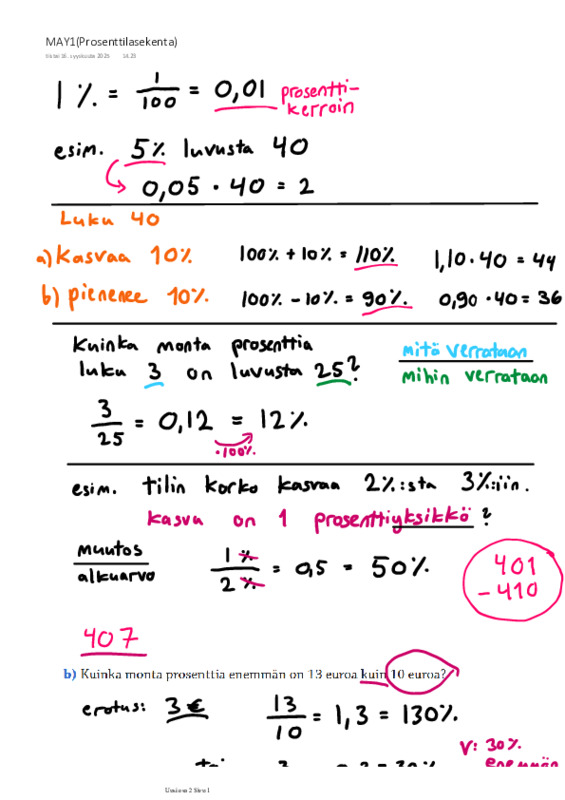 MAY1(Prosenttilasekenta)
tiistai 16. syyskuuta 2025 14.25
1 % = 1/100 = 0,01 prosentti-
kerroin
esim. 5% luvusta 40
0,05 · 40 = 2
Luku 40
a) kasvaa 10% 100% + 10% = 110% 1,10 · 40 = 44
b) pienenee 10% 100% - 10% = 90% 0,90 · 40 = 36
Kuinka monta prosenttia mitä verrataan
luku 3 on luvusta 25? mihin verrataan
3/25 = 0,12 = 12%
·100%
esim. tilin korko kasvaa 2%:sta 3%:iin.
kasvu on 1 prosenttiyksikkö?
muutos/alkuarvo 1%/2% = 0,5 = 50%
401
-410
407
b) Kuinka monta prosenttia enemmän on 13 euroa kuin 10 euroa?
erotus: 3 € 13/10 = 1,3 = 130%
V: 30%
enemmän